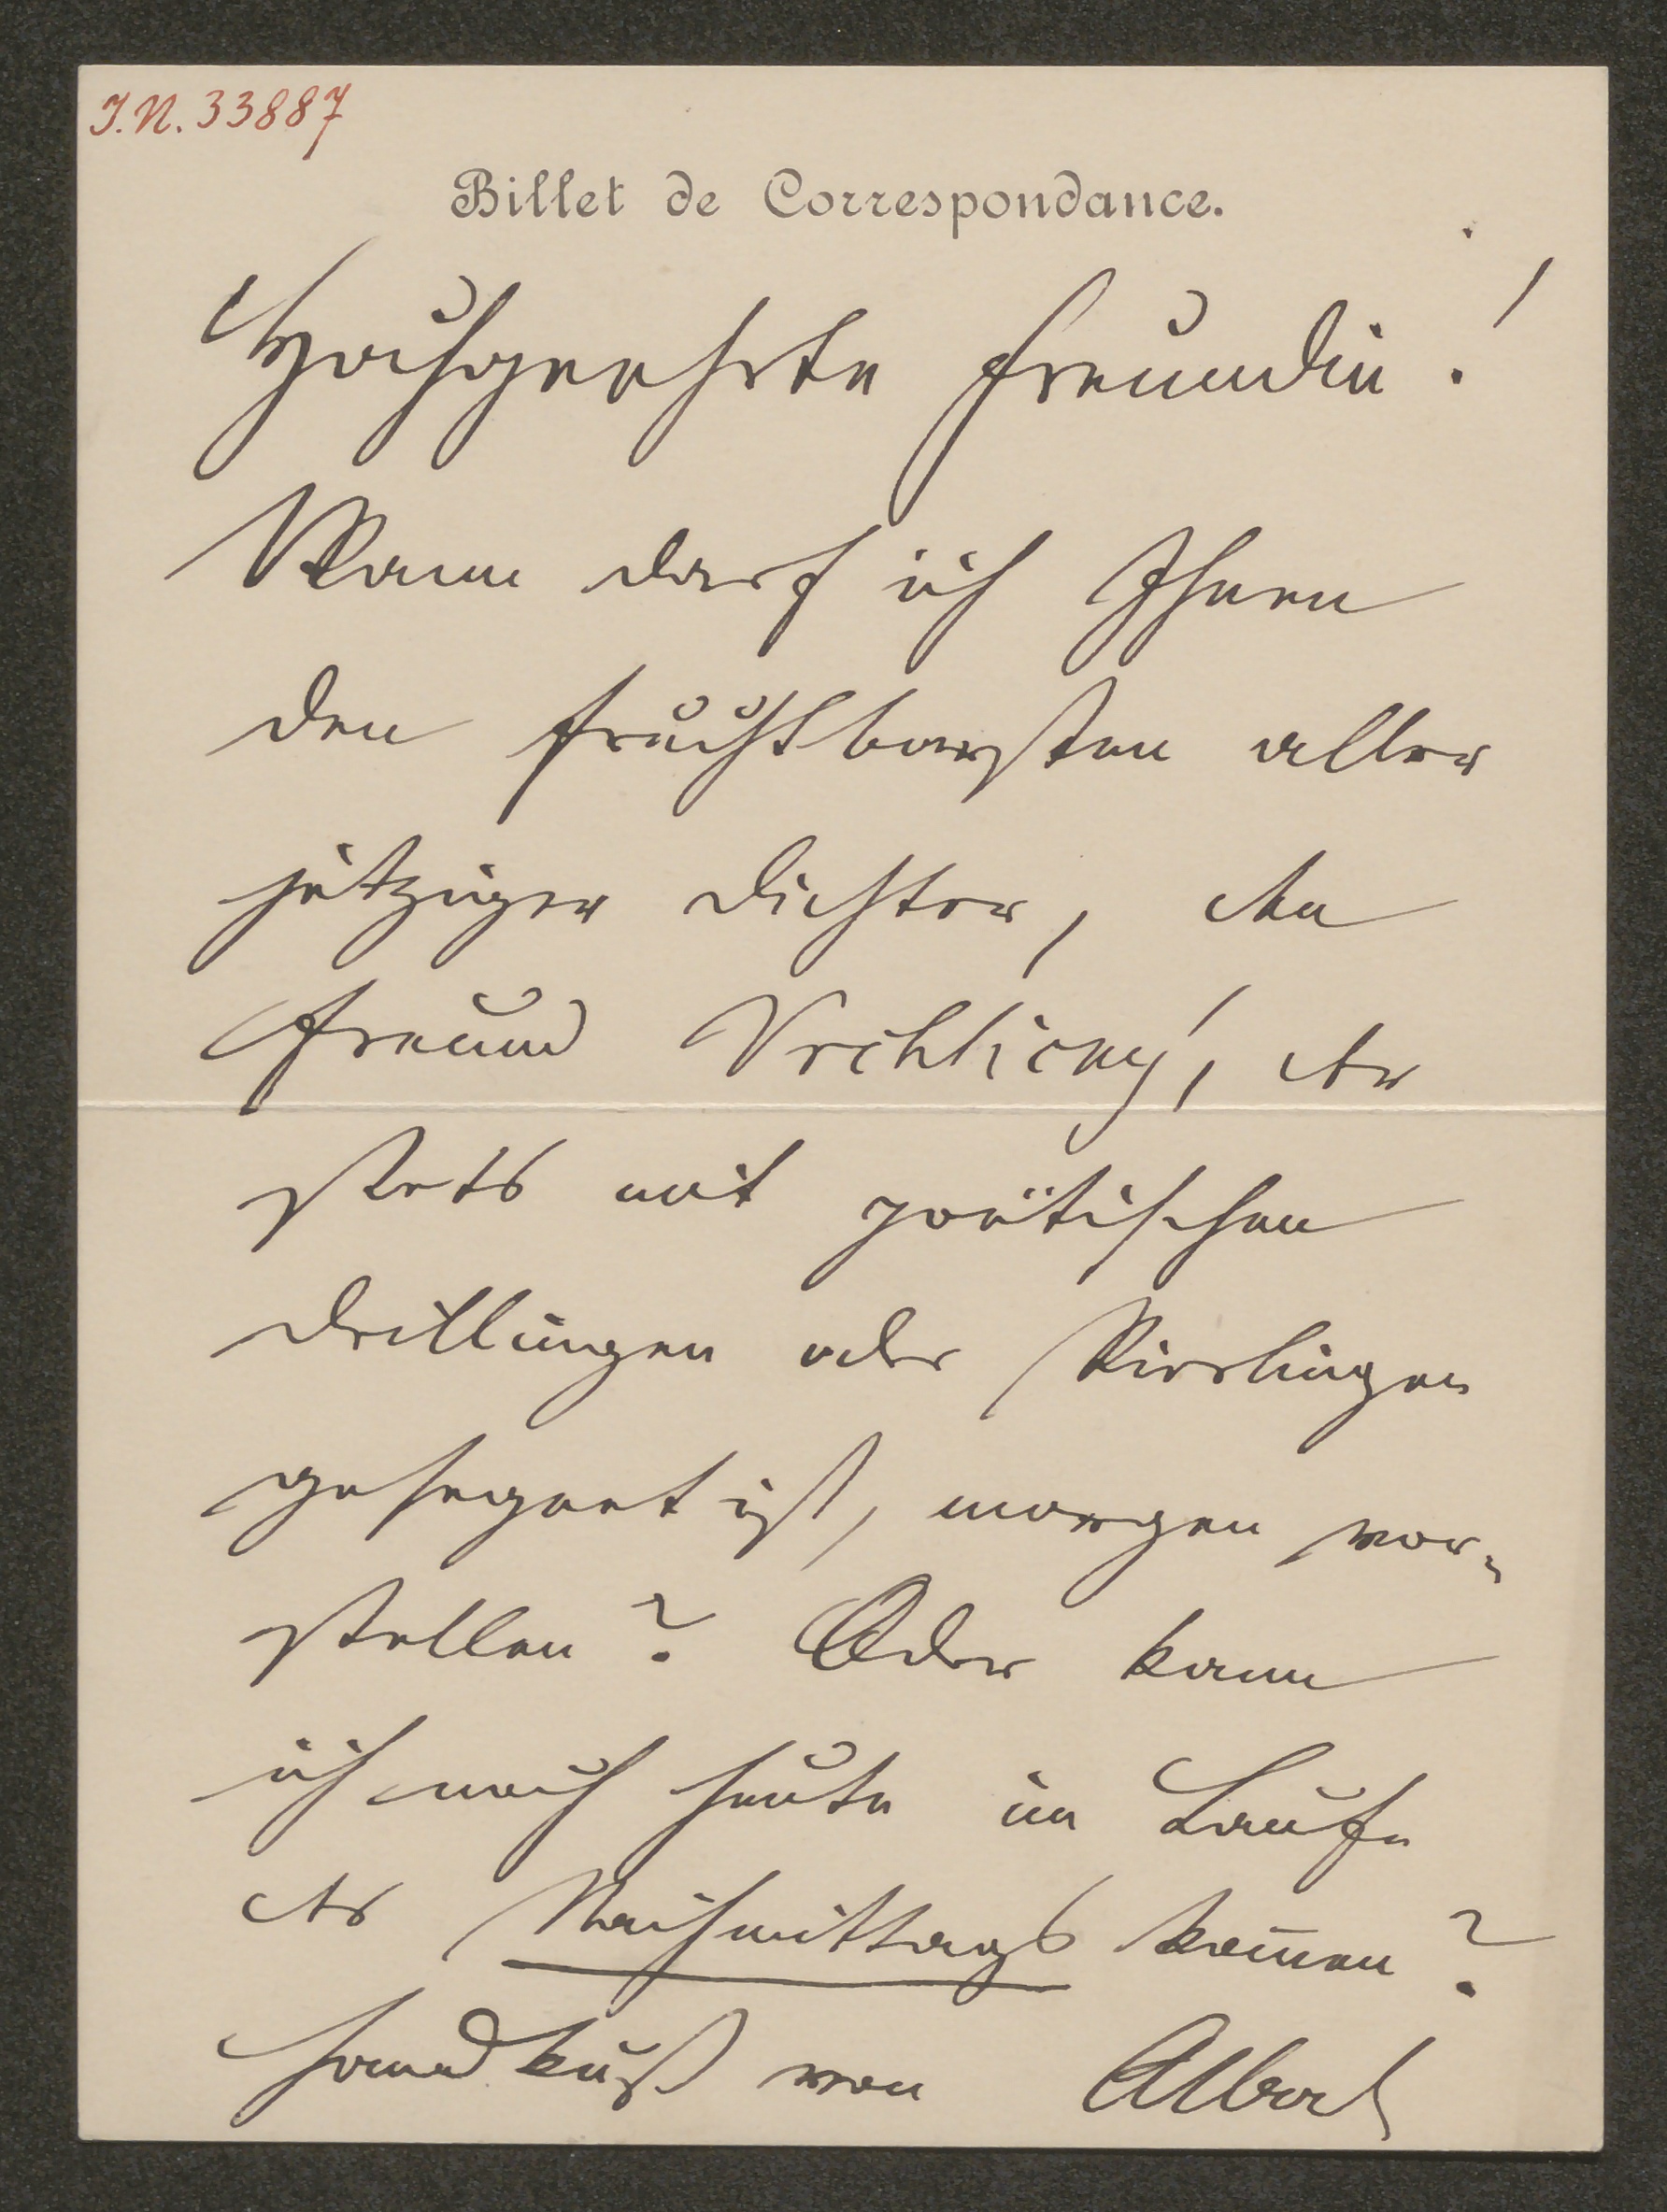 I.N. 33887
Billet de Correspondance.
Hochgeehrte Freundin!
Wann darf ich Ihnen
den fruchtbarsten aller
jetziger Dichter, den
Freund Vrchlický, der
stets mit poëtischen
Drillingen oder Vierlingen
gesegnet ist, morgen vor-
stellen? Oder kann
ich noch heute im Laufe
des Nachmittags kom̄en?
Handkuß von Albert